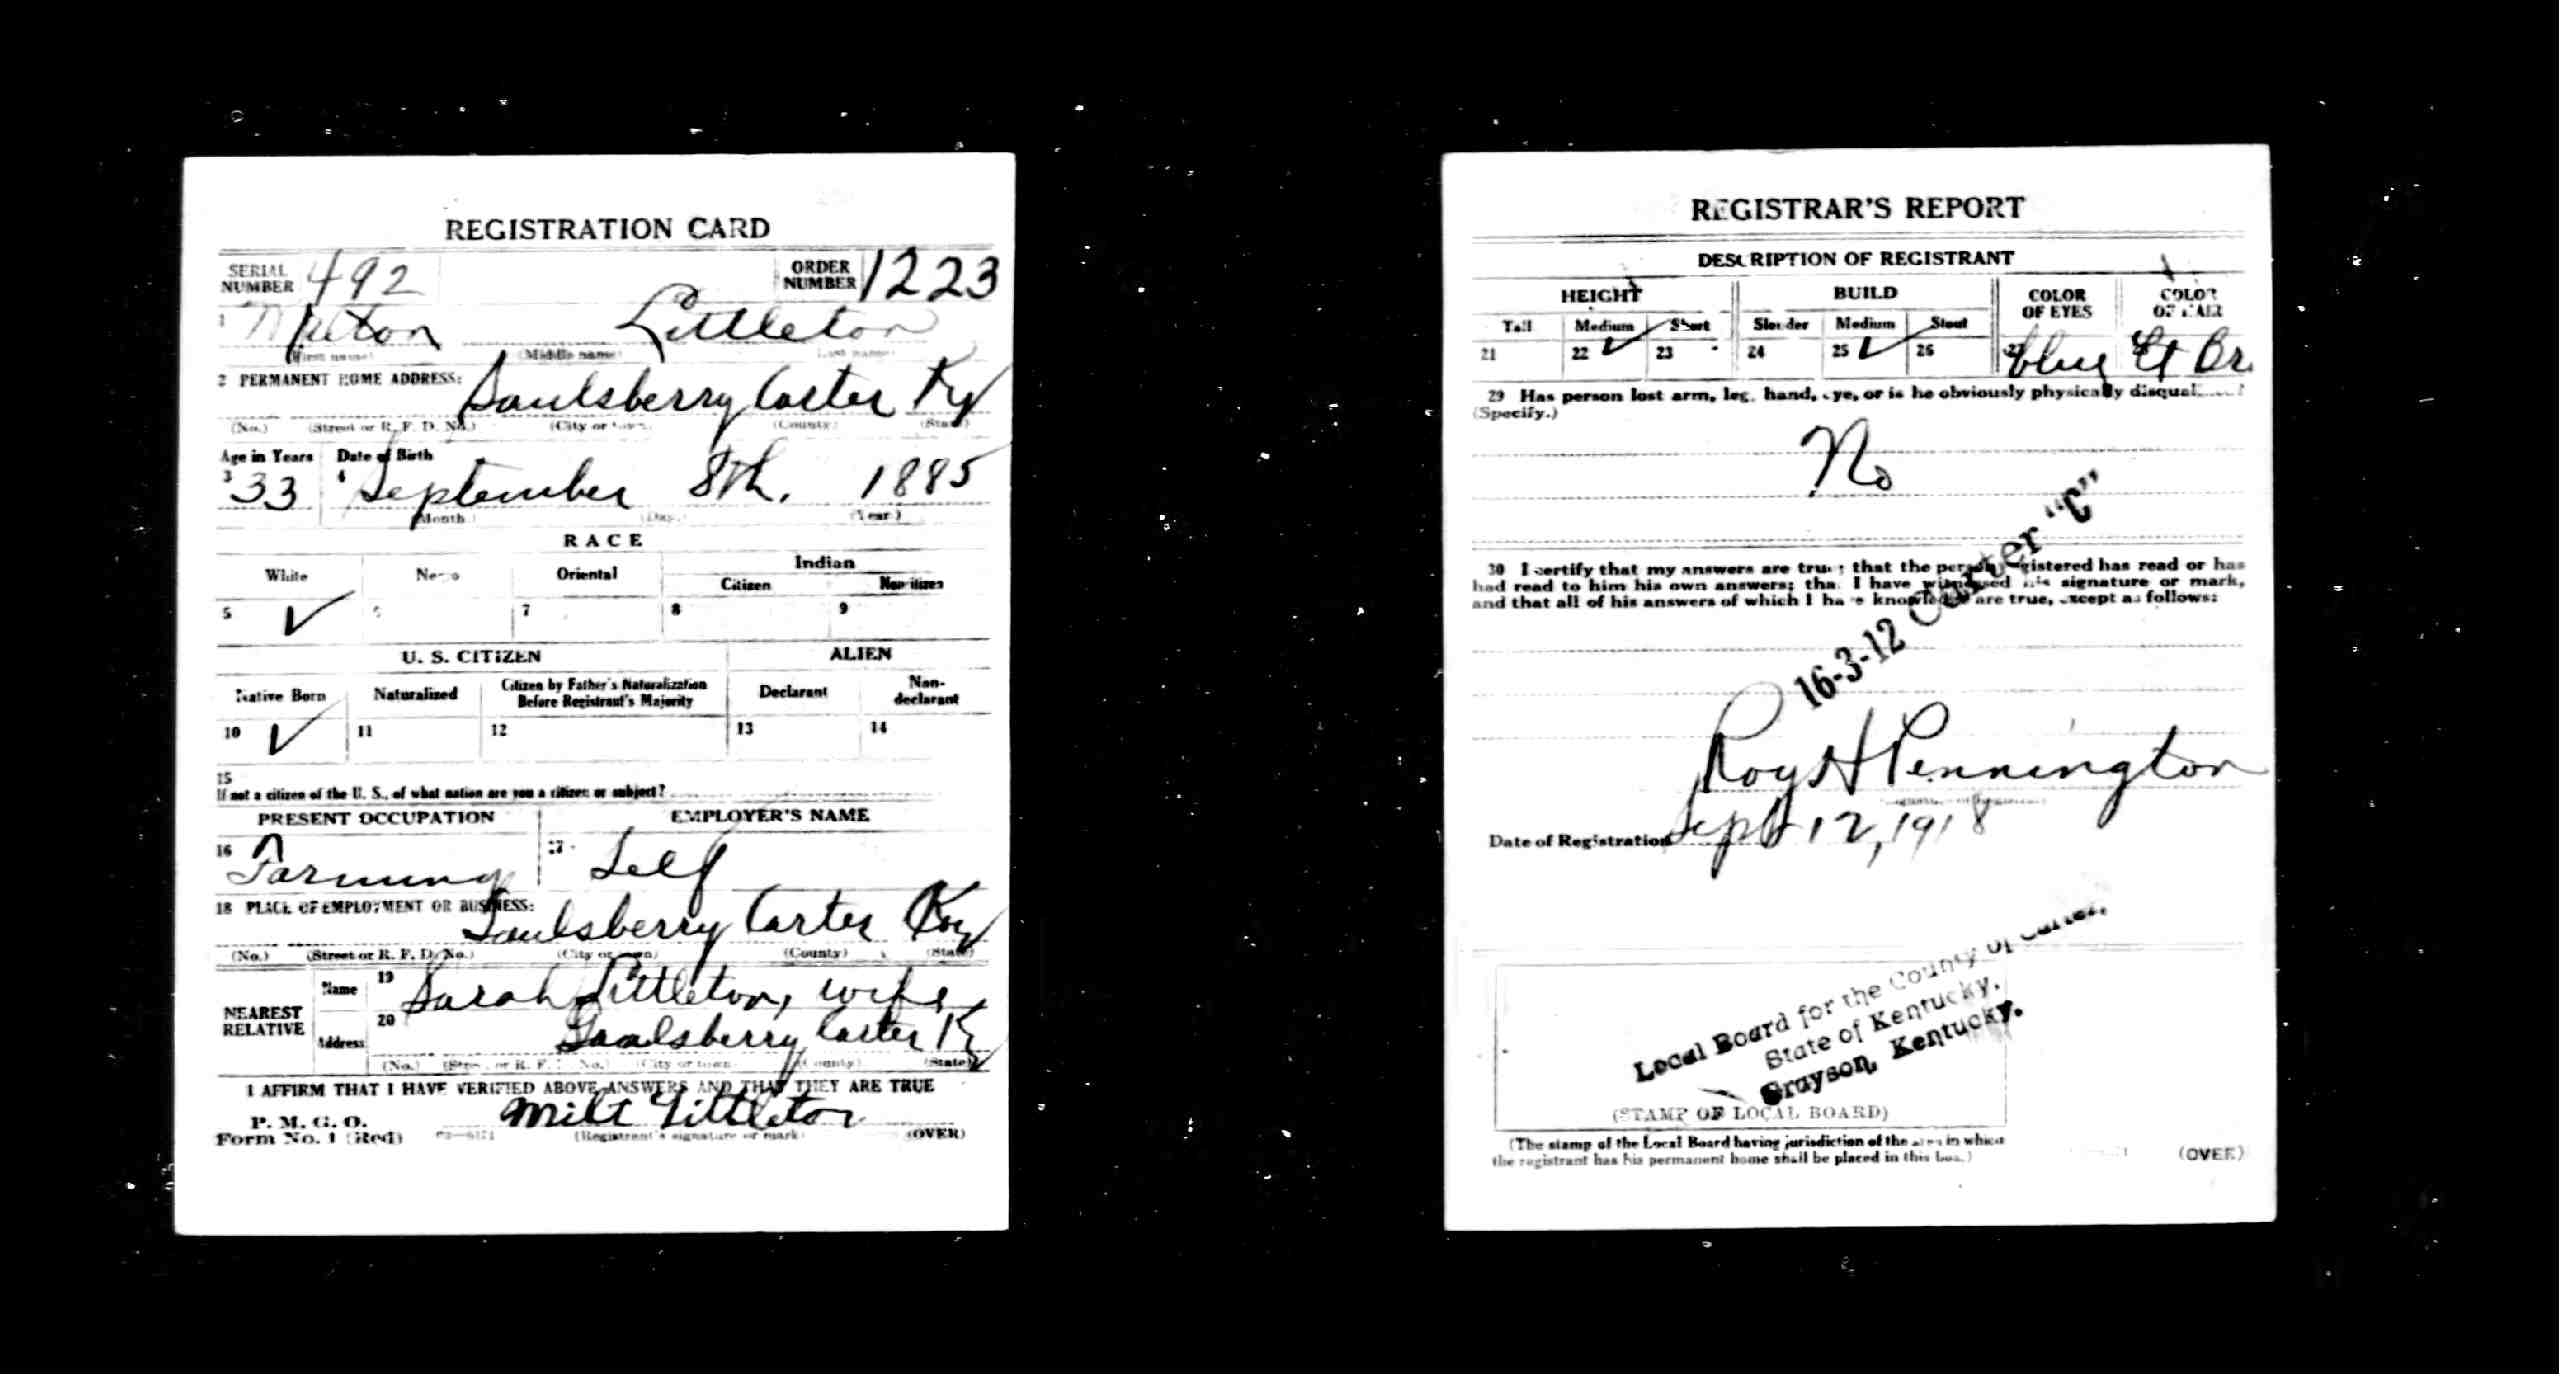 REGISTRATION CARD
SERIAL NUMBER 492 ORDER NUMBER 1223
1 Milton Littleton
(First name) (Middle name) (Last name)
2 PERMANENT HOME ADDRESS:
Saulsberry Carter Ky
(No.) (Street or R. F. D. No.) (City or town) (County) (State)
Age in Years Date of Birth
3 33 4 September 8th. 1885
(Month.) (Day.) (Year.)
RACE
White Negro Oriental Indian
Citizen Noncitizen
5 ✓ 6 7 8 9
U. S. CITIZEN ALIEN
Native Born Naturalized Citizen by Father's Naturalization Before Registrant's Majority Declarant Non-declarant
10 ✓ 11 12 13 14
15
If not a citizen of the U. S., of what nation are you a citizen or subject?
PRESENT OCCUPATION EMPLOYER'S NAME
16 Farming 17 Self
18 PLACE OF EMPLOYMENT OR BUSINESS:
Saulsberry Carter Ky
(No.) (Street or R. F. D. No.) (City or town) (County) (State)
NEAREST RELATIVE
Name 19 Sarah Littleton, wife
Address 20 Saulsberry Carter Ky
(No.) (Street or R. F. D. No.) (City or town) (County) (State)
I AFFIRM THAT I HAVE VERIFIED ABOVE ANSWERS AND THAT THEY ARE TRUE
P. M. G. O.
Form No. 1 (Red) Milt Littleton
(Registrant's signature or mark) (OVER)
REGISTRAR'S REPORT
DESCRIPTION OF REGISTRANT
HEIGHT BUILD COLOR OF EYES COLOR OF HAIR
Tall Medium Short Slender Medium Stout
21 22 ✓ 23 24 25 ✓ 26 27 blue Lt Br.
29 Has person lost arm, leg, hand, eye, or is he obviously physically disqualified?
(Specify.)
No
30 I certify that my answers are true; that the person registered has read or has
had read to him his own answers; that I have witnessed his signature or mark,
and that all of his answers of which I have knowledge are true, except as follows:
16-3-12 Carter "C"
Roy H Pennington
Date of Registration Sept 12, 1918
Local Board for the County of Carter,
State of Kentucky.
Grayson, Kentucky.
(STAMP OF LOCAL BOARD)
(The stamp of the Local Board having jurisdiction of the area in which
the registrant has his permanent home shall be placed in this box.)
(OVER)